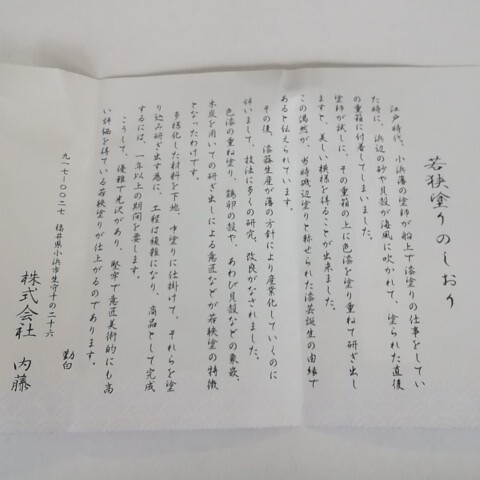 若狭塗りのしおり
江戸時代、小浜藩の塗師が船上で漆塗りの仕事をしてい
た時に、浜辺の砂や貝殻が海風に吹かれて、塗られた直後
の重箱に付着してしまいました。
塗師が試しに、その重箱の上に色漆を塗り重ねて研ぎ出し
ますと、美しい模様を得ることが出来ました。
この偶然が、当時磯辺塗りと称せられた漆芸誕生の由縁で
あると伝えられています。
その後、漆器生産が藩の方針により産業化していくのに
伴いまして、技法に多くの研究、改良がなされました。
色漆の重ね塗り、鶏卵の殻や、あわび貝殻などの象嵌、
木炭を用いての研ぎ出しによる意匠などが若狭塗の特徴
となったわけです。
多様化した材料を下地、中塗りに仕掛けて、それらを塗
り込み研ぎ出す為に、工程は複雑になり、商品として完成
するには、一年以上の期間を要します。
こうして、優雅で光沢があり、堅牢で意匠美術的にも高
い評価を得ている若狭塗りが仕上がるのであります。
勤白
九一七-〇〇二七 福井県小浜市生守十の二十六
株式会社 内藤